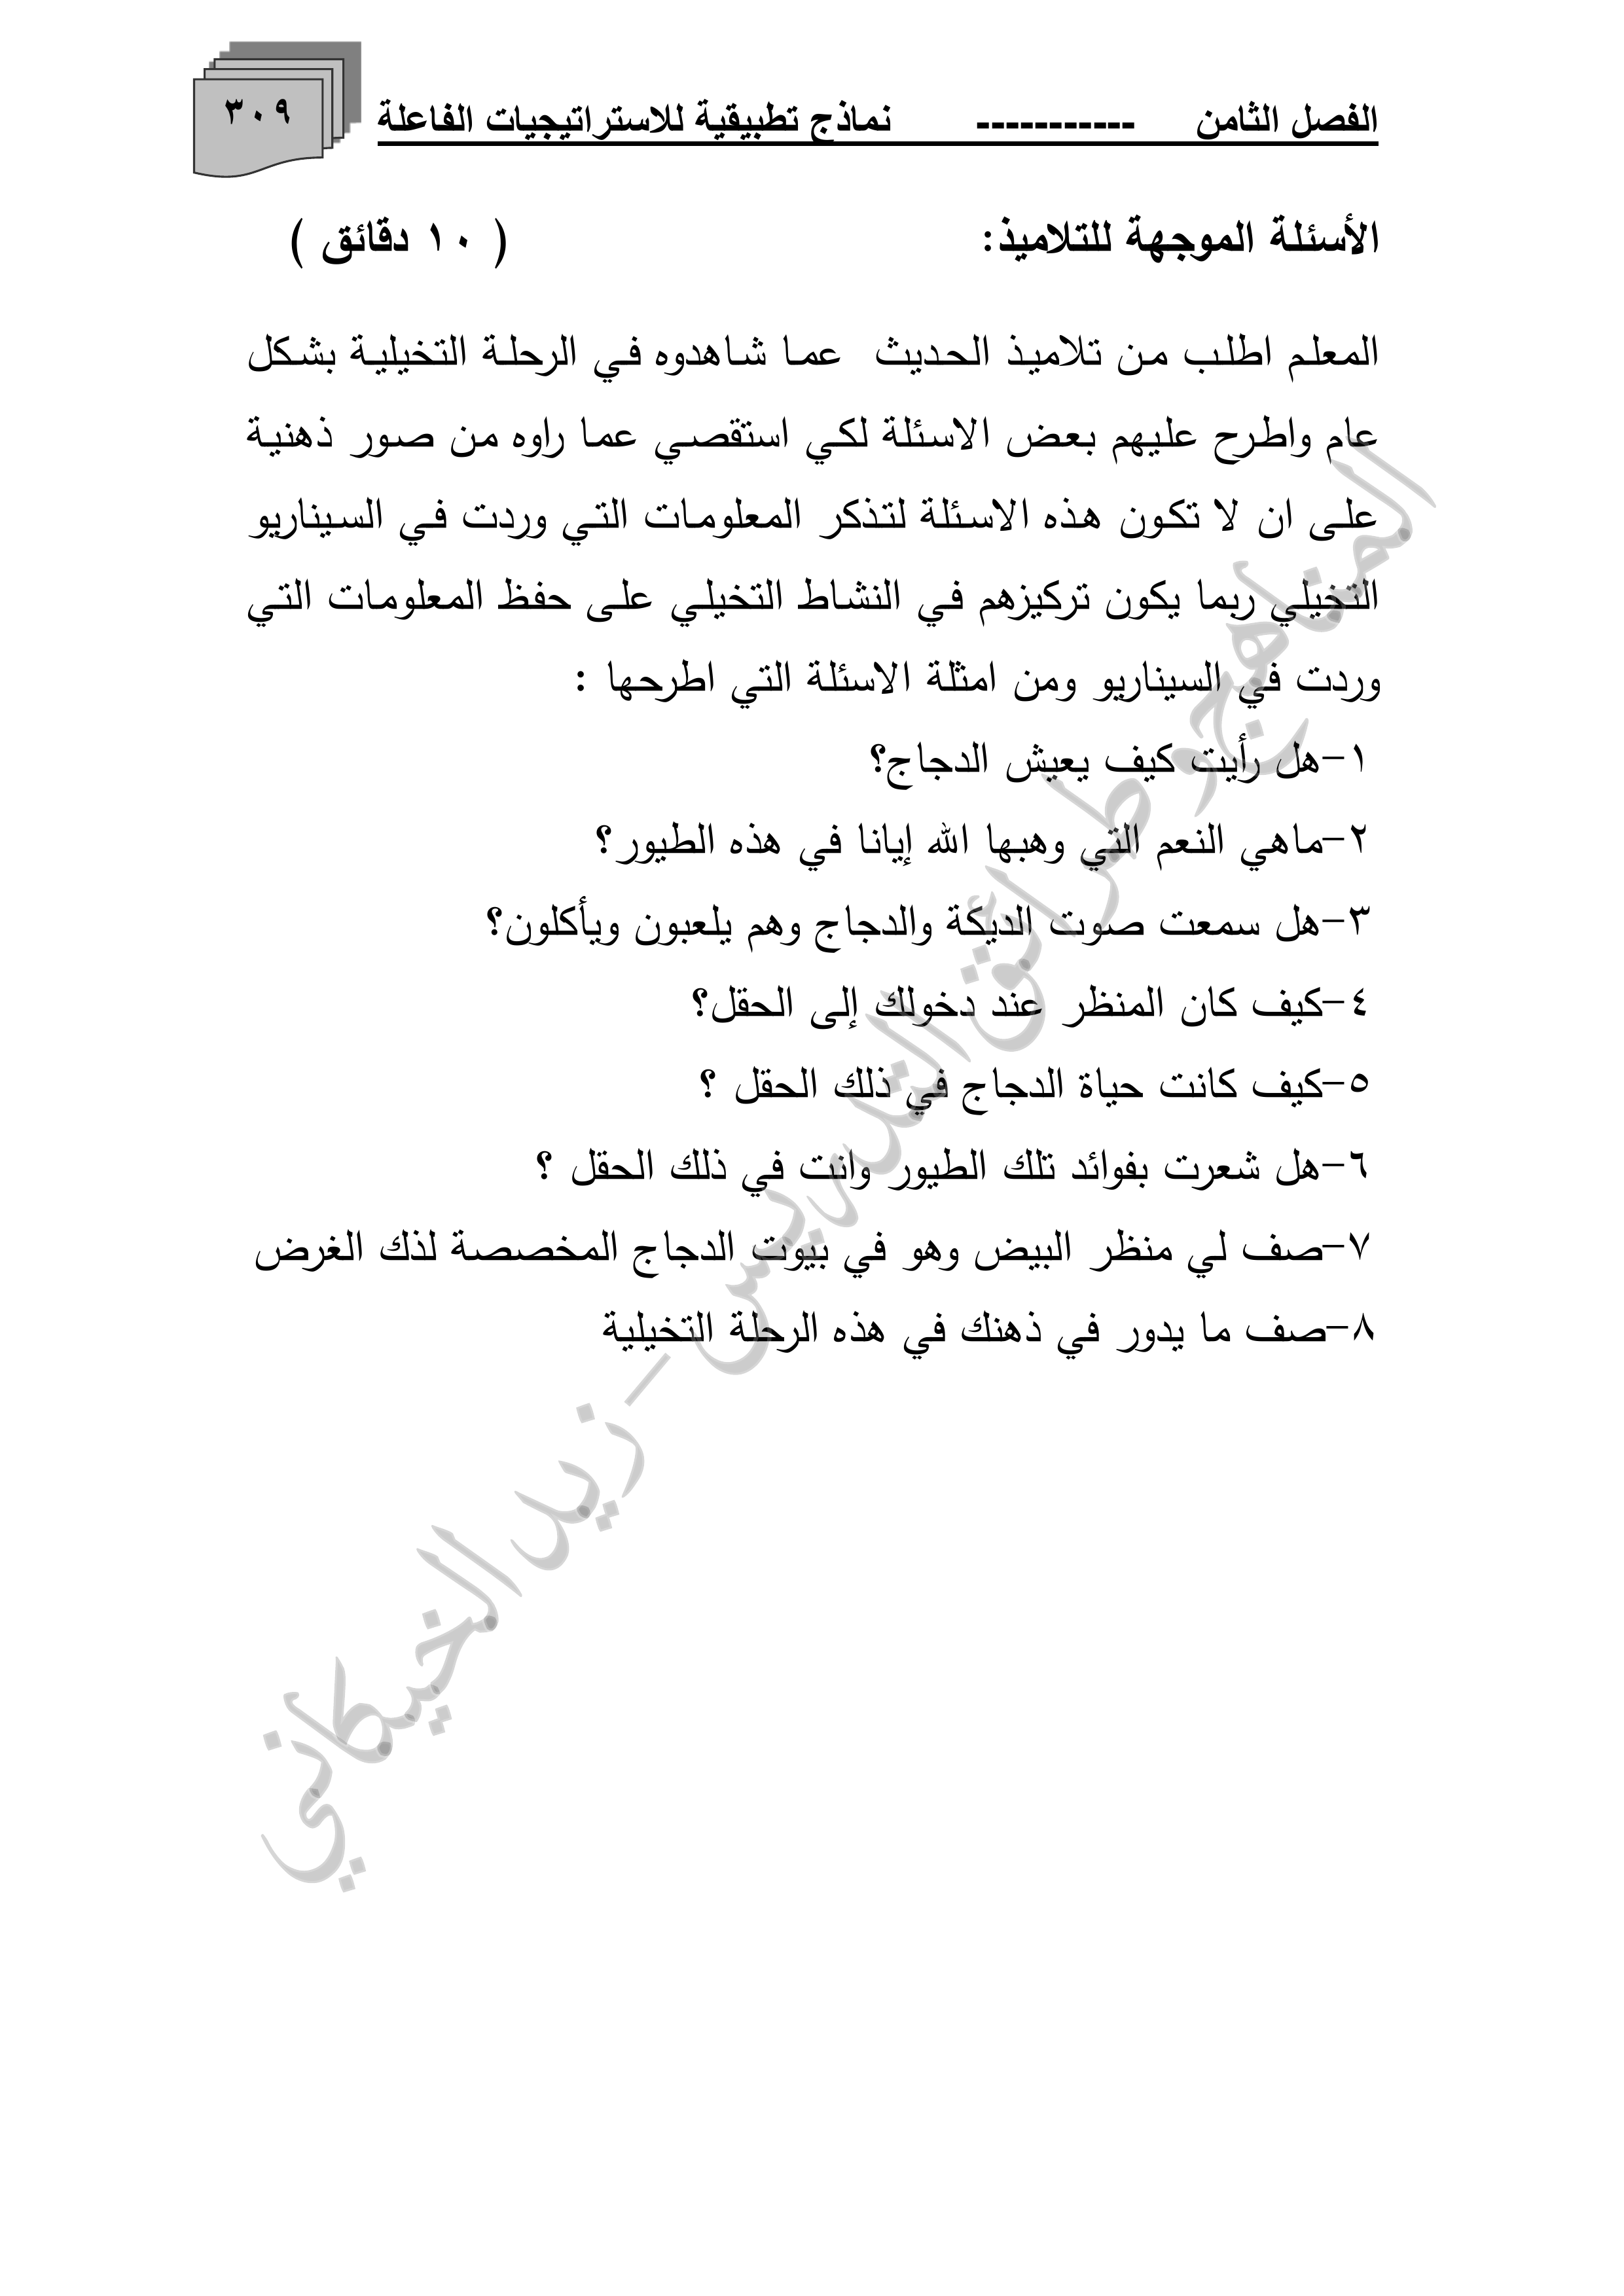 الفصل الثامن ----------- نماذج تطبيقية للاستراتيجيات الفاعلة ٣٠٩
الأسئلة الموجهة للتلاميذ: ( ١٠ دقائق )
المعلم اطلب من تلاميذ الحديث عما شاهدوه في الرحلة التخيلية بشكل
عام واطرح عليهم بعض الاسئلة لكي استقصي عما راوه من صور ذهنية
على ان لا تكون هذه الاسئلة لتذكر المعلومات التي وردت في السيناريو
التخيلي ربما يكون تركيزهم في النشاط التخيلي على حفظ المعلومات التي
وردت في السيناريو ومن امثلة الاسئلة التي اطرحها :
١-هل رأيت كيف يعيش الدجاج؟
٢-ماهي النعم التي وهبها الله إيانا في هذه الطيور؟
٣-هل سمعت صوت الديكة والدجاج وهم يلعبون ويأكلون؟
٤-كيف كان المنظر عند دخولك إلى الحقل؟
٥-كيف كانت حياة الدجاج في ذلك الحقل ؟
٦-هل شعرت بفوائد تلك الطيور وانت في ذلك الحقل ؟
٧-صف لي منظر البيض وهو في بيوت الدجاج المخصصة لذك الغرض
٨-صف ما يدور في ذهنك في هذه الرحلة التخيلية
المناهج وطرائق التدريس - زيد الخيكاني